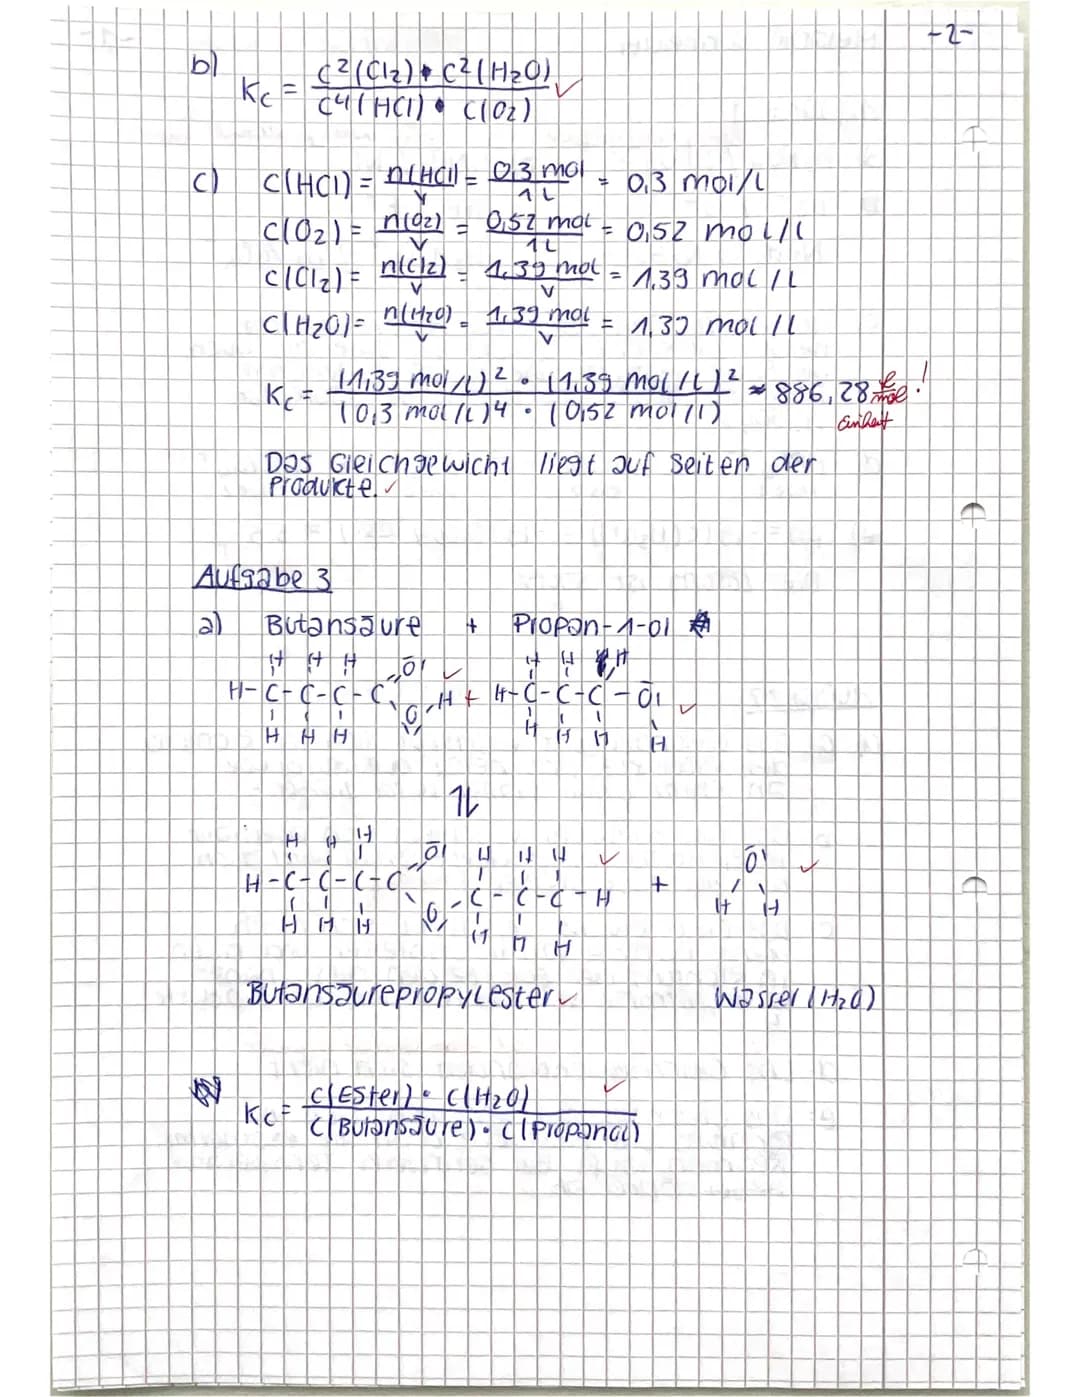 -2-
b) Kc = c²(Cl₂) • c²(H₂O) / c⁴(HCl) • c(O₂) ✓
c) c(HCl) = n(HCl)/V = 0,3 mol/1L = 0,3 mol/L
c(O₂) = n(O₂)/V = 0,52 mol/1L = 0,52 mol/l
c(Cl₂) = n(Cl₂)/V = 1,39 mol/V = 1,39 mol/L
c(H₂O) = n(H₂O)/V = 1,39 mol/V = 1,39 mol/L
Kc = (1,39 mol/L)² • (1,39 mol/L)² / (0,3 mol/L)⁴ • (0,52 mol/l) ≈ 886,28 l/mol !
Einheit
Das Gleichgewicht liegt auf Seiten der
Produkte. ✓
Aufgabe 3
a) Butansäure + Propan-1-ol
H H H O ✓ H H H
H-C-C-C-C O-H + H-C-C-C-O ✓
H H H H H H H
⇌
H H H O H H H ✓ O ✓
H-C-C-C-C O-C-C-C-H + H H
H H H H H H
Butansäurepropylester ✓ Wasser (H₂O)
Kc = c(Ester) • c(H₂O) / c(Butansäure) • c(Propanol) ✓